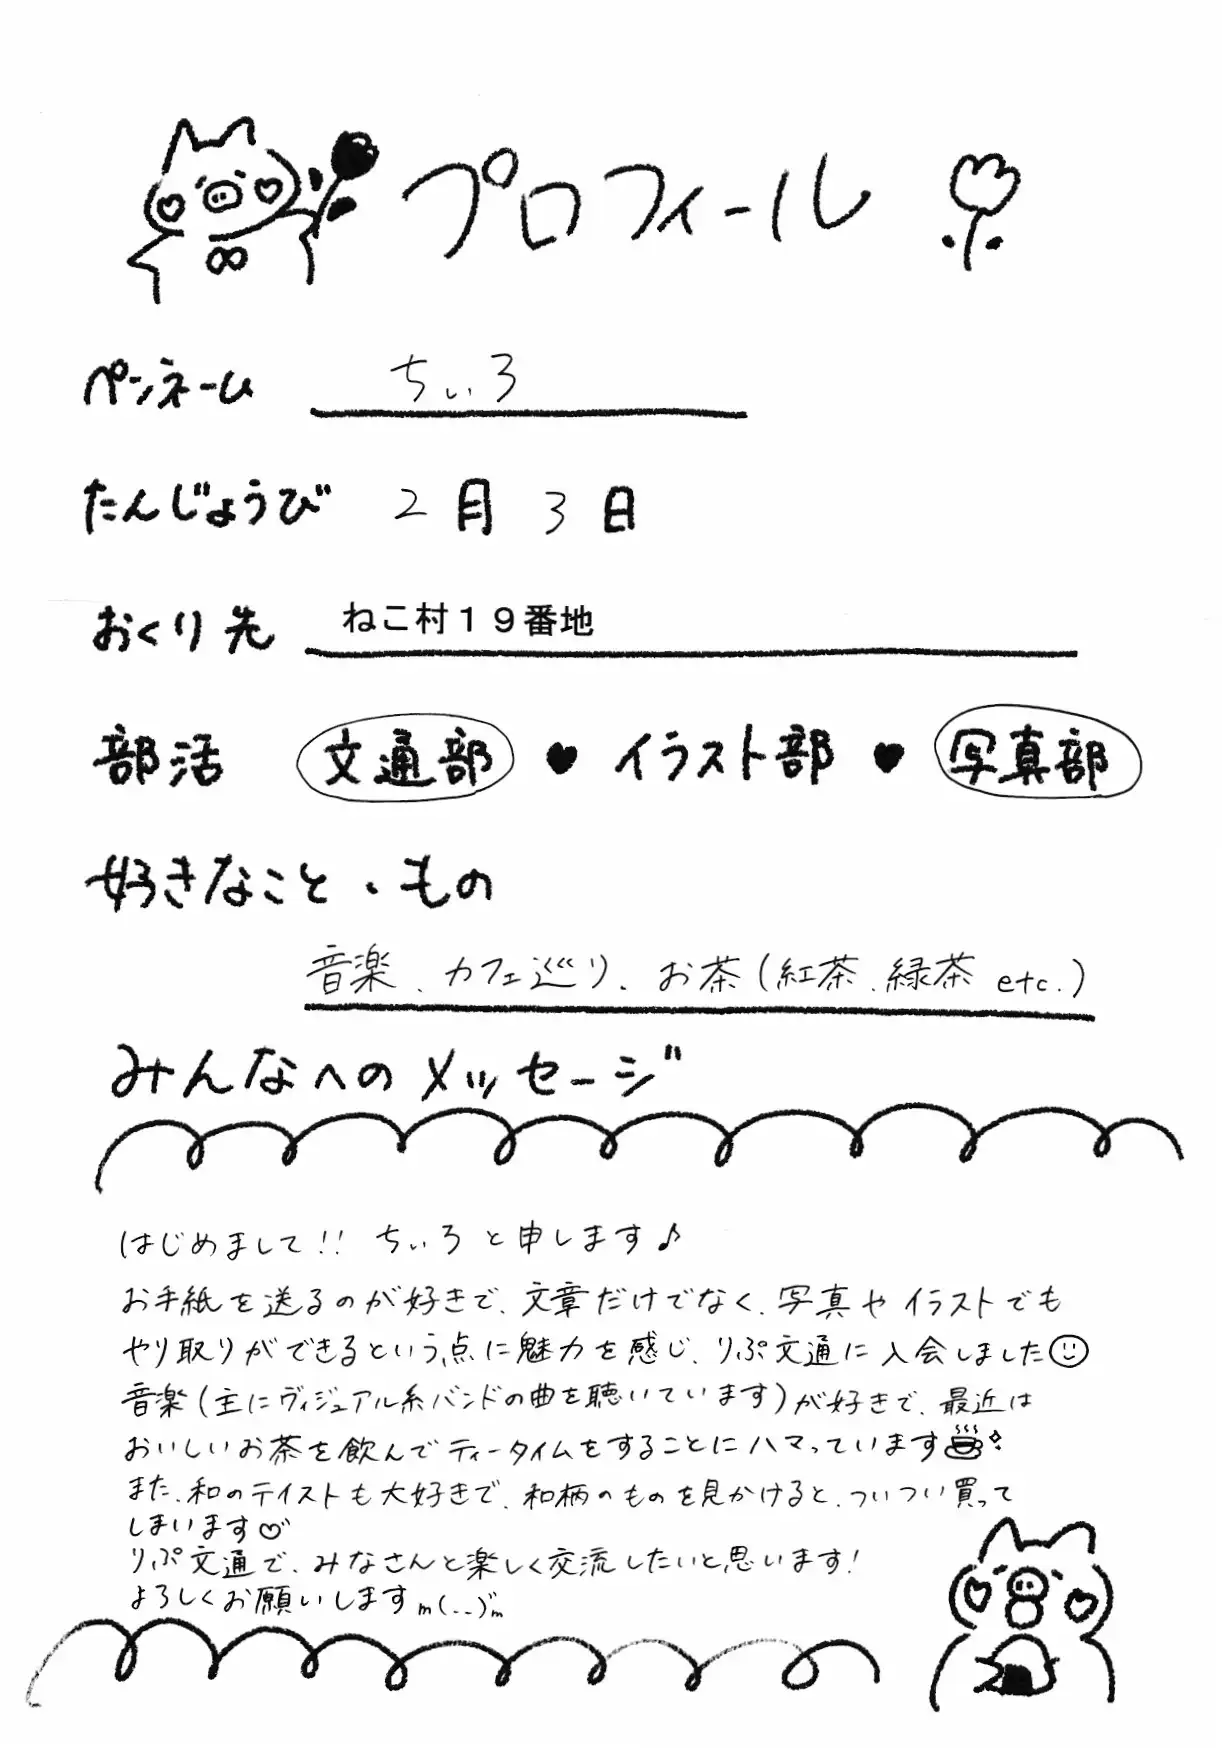 プロフィール
ペンネーム ちぃろ
たんじょうび 2月3日
おくり先 ねこ村19番地
部活 文通部 ♥ イラスト部 ♥ 写真部
好きなこと・もの
音楽、カフェ巡り、お茶(紅茶、緑茶 etc.)
みんなへのメッセージ
はじめまして!! ちぃろと申します♪
お手紙を送るのが好きで、文章だけでなく、写真やイラストでも
やり取りができるという点に魅力を感じ、りぷ文通に入会しました☺
音楽(主にヴィジュアル系バンドの曲を聴いています)が好きで、最近は
おいしいお茶を飲んでティータイムをすることにハマっています☕
また、和のテイストも大好きで、和柄のものを見かけると、ついつい買って
しまいます♡
りぷ文通で、みなさんと楽しく交流したいと思います!
よろしくお願いしますm(..)m